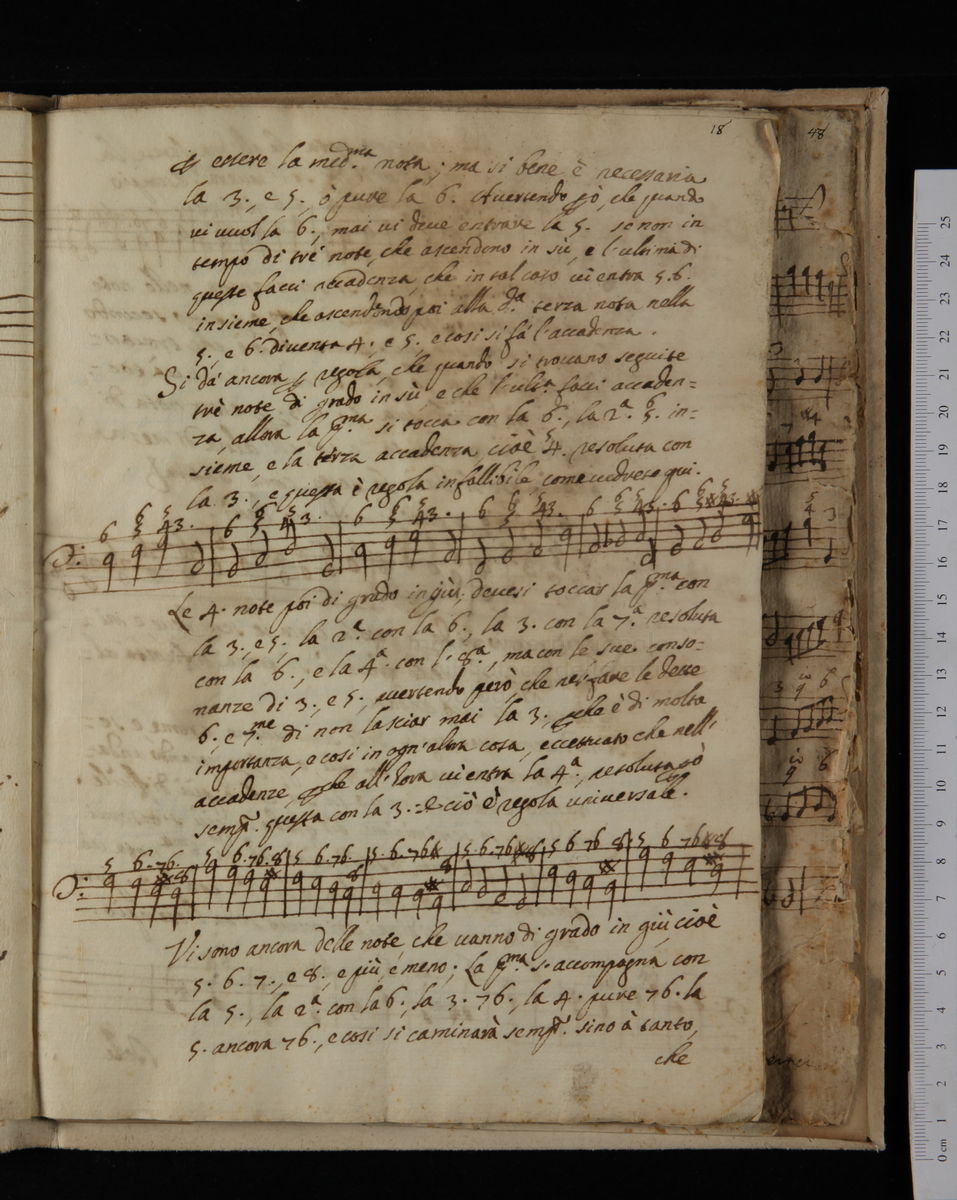 18
48
p essere la med.ma nota; ma si bene è necessaria
la 3., e 5., ò pure la 6. Avertendo pò, che quando
vi vuol la 6., mai vi deve entrare la 5. se non in
tempo di trè note, che ascendono in sù, e l'ultima di
queste facci accadenza, che in tal caso vi entra 5.6.
insieme, che ascendendo poi alla d.a terza nota nella
5. e 6. diventa 4. e 5. e così si fà l'accadenza.
Si dà ancora p regola, che quando si trovano seguite
trè note di grado in sù, e che l'ult.a facci accaden=
za, allora la p.ma si tocca con la 6., la 2.a 6 5. in=
sieme, e la terza accadenza cioè 5 4. resoluta con
la 3., e questa è regola infallibile come vedrete qui.
Le 4. note poi di grado in giù, devesi toccar la p.ma con
la 3., e 5., la 2.a con la 6., la 3. con la 7.a resoluta
con la 6., e la 4.a con l'8.a, ma con le sue conso=
nanze di 3., e 5., avertendo però, che nel fare le dette
6., e 7.me di non lasciar mai la 3., che è di molta
importanza, e così in ogn'altra cosa, eccettuato che nell'
accadenze, che all'hora vi entra la 4.a, resoluta pò
semp. questa con la 3.=e ciò è regola universale.
Vi sono ancora delle note, che vanno di grado in giù cioè
5. 6. 7., e 8., e più, e meno; La p.ma s'accompagna con
la 5., la 2.a con la 6., la 3. 76., la 4. pure 76. la
5. ancora 76., e così si caminarà semp. sino à tanto,
che